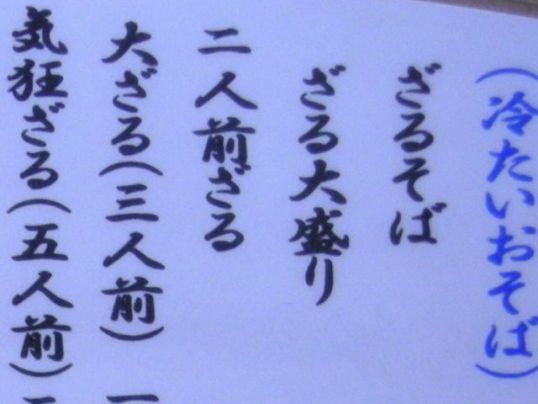 (冷たいおそば)
ざるそば
ざる大盛り
二人前ざる
大ざる(三人前)
気狂ざる(五人前)